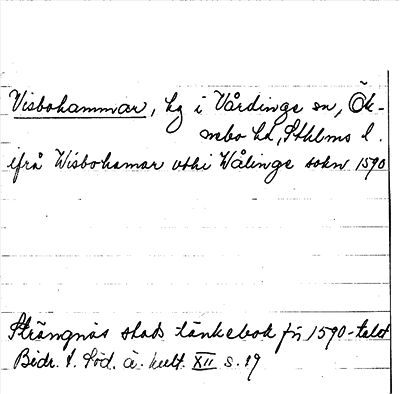 Visbohammar, hg i Vårdinge sn, Ök-
nebo hd, Sthlms l.
ifrå Wisbohamar uthi Wålinge sokn 1590
Strängnäs stads tänkebok fr 1590-talet
Bidr. t. Söd. ä. kult. XII s. 19